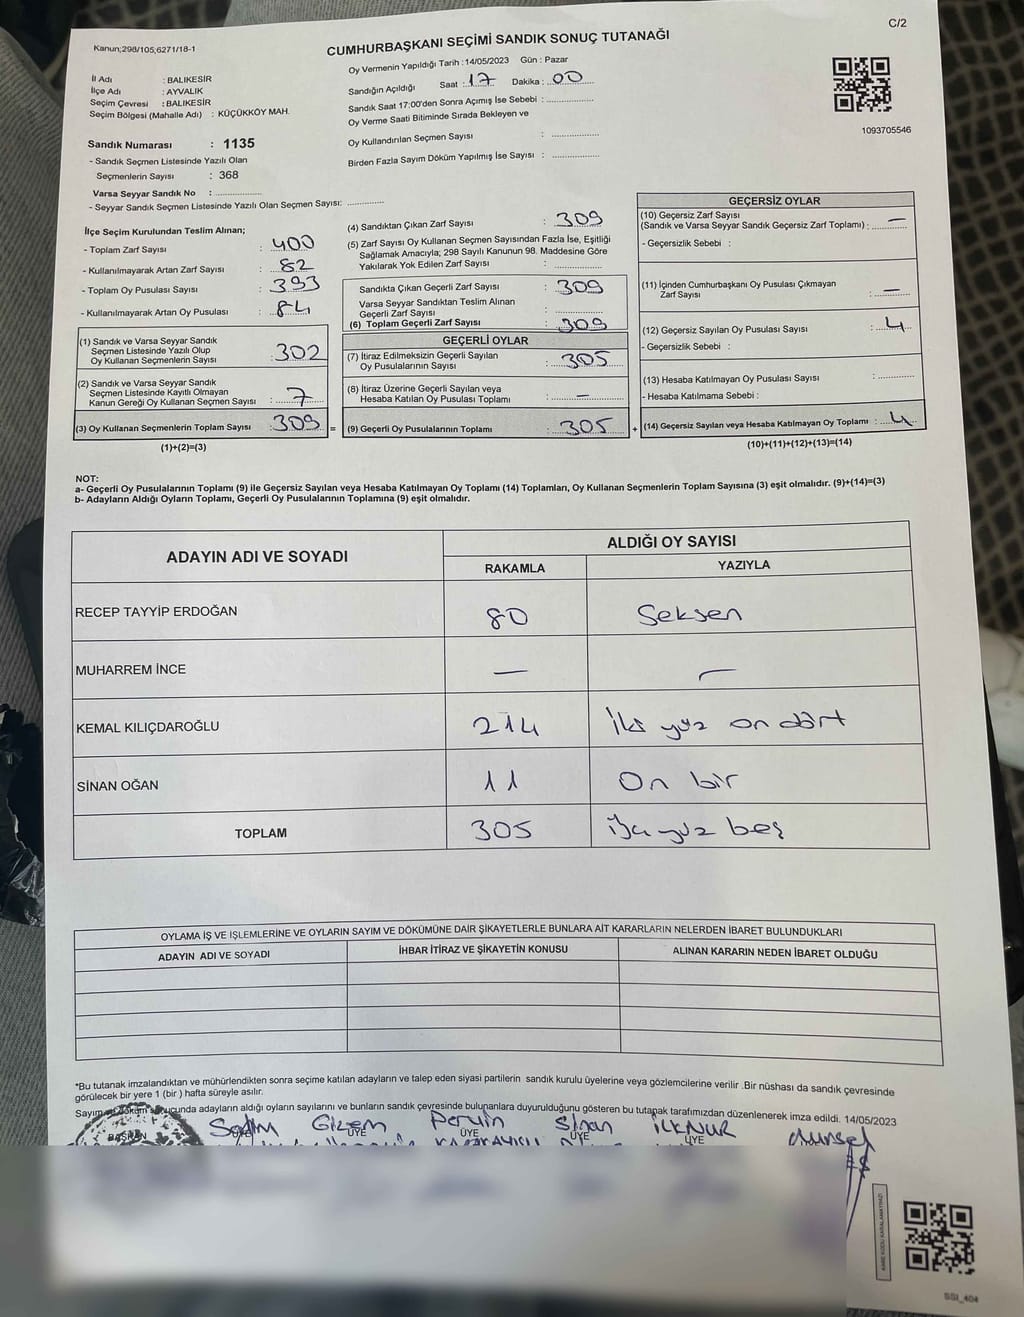 C/2
Kanun;298/105;6271/18-1
CUMHURBAŞKANI SEÇİMİ SANDIK SONUÇ TUTANAĞI
İl Adı : BALIKESİR
İlçe Adı : AYVALIK
Seçim Çevresi : BALIKESİR
Seçim Bölgesi (Mahalle Adı) : KÜÇÜKKÖY MAH.
Oy Vermenin Yapıldığı Tarih : 14/05/2023 Gün : Pazar
Sandığın Açıldığı Saat : 17 Dakika : 00
Sandık Saat 17:00'den Sonra Açımış İse Sebebi :
Oy Verme Saati Bitiminde Sırada Bekleyen ve
Oy Kullandırılan Seçmen Sayısı :
Birden Fazla Sayım Döküm Yapılmış İse Sayısı :
1093705546
Sandık Numarası : 1135
- Sandık Seçmen Listesinde Yazılı Olan
Seçmenlerin Sayısı : 368
Varsa Seyyar Sandık No :
- Seyyar Sandık Seçmen Listesinde Yazılı Olan Seçmen Sayısı:
İlçe Seçim Kurulundan Teslim Alınan;
- Toplam Zarf Sayısı : 400
- Kullanılmayarak Artan Zarf Sayısı : 82
- Toplam Oy Pusulası Sayısı : 393
- Kullanılmayarak Artan Oy Pusulası : 84
(1) Sandık ve Varsa Seyyar Sandık
Seçmen Listesinde Yazılı Olup
Oy Kullanan Seçmenlerin Sayısı : 302
(2) Sandık ve Varsa Seyyar Sandık
Seçmen Listesinde Kayıtlı Olmayan
Kanun Gereği Oy Kullanan Seçmen Sayısı : 7
(3) Oy Kullanan Seçmenlerin Toplam Sayısı : 309 =
(1)+(2)=(3)
(4) Sandıktan Çıkan Zarf Sayısı : 309
(5) Zarf Sayısı Oy Kullanan Seçmen Sayısından Fazla İse, Eşitliği
Sağlamak Amacıyla; 298 Sayılı Kanunun 98. Maddesine Göre
Yakılarak Yok Edilen Zarf Sayısı :
Sandıkta Çıkan Geçerli Zarf Sayısı : 309
Varsa Seyyar Sandıktan Teslim Alınan
Geçerli Zarf Sayısı :
(6) Toplam Geçerli Zarf Sayısı : 309
GEÇERLİ OYLAR
(7) İtiraz Edilmeksizin Geçerli Sayılan
Oy Pusulalarının Sayısı : 305
(8) İtiraz Üzerine Geçerli Sayılan veya
Hesaba Katılan Oy Pusulası Toplamı : —
(9) Geçerli Oy Pusulalarının Toplamı : 305 +
GEÇERSİZ OYLAR
(10) Geçersiz Zarf Sayısı
(Sandık ve Varsa Seyyar Sandık Geçersiz Zarf Toplamı) : —
- Geçersizlik Sebebi :
(11) İçinden Cumhurbaşkanı Oy Pusulası Çıkmayan
Zarf Sayısı : —
(12) Geçersiz Sayılan Oy Pusulası Sayısı : 4
- Geçersizlik Sebebi :
(13) Hesaba Katılmayan Oy Pusulası Sayısı :
- Hesaba Katılmama Sebebi :
(14) Geçersiz Sayılan veya Hesaba Katılmayan Oy Toplamı : 4
(10)+(11)+(12)+(13)=(14)
NOT:
a- Geçerli Oy Pusulalarının Toplamı (9) ile Geçersiz Sayılan veya Hesaba Katılmayan Oy Toplamı (14) Toplamları, Oy Kullanan Seçmenlerin Toplam Sayısına (3) eşit olmalıdır. (9)+(14)=(3)
b- Adayların Aldığı Oyların Toplamı, Geçerli Oy Pusulalarının Toplamına (9) eşit olmalıdır.
ADAYIN ADI VE SOYADI
ALDIĞI OY SAYISI
RAKAMLA YAZIYLA
RECEP TAYYİP ERDOĞAN 80 Seksen
MUHARREM İNCE — —
KEMAL KILIÇDAROĞLU 214 İki yüz on dört
SİNAN OĞAN 11 On bir
TOPLAM 305 yüz beş
OYLAMA İŞ VE İŞLEMLERİNE VE OYLARIN SAYIM VE DÖKÜMÜNE DAİR ŞİKAYETLERLE BUNLARA AİT KARARLARIN NELERDEN İBARET BULUNDUKLARI
ADAYIN ADI VE SOYADI İHBAR İTİRAZ VE ŞİKAYETİN KONUSU ALINAN KARARIN NEDEN İBARET OLDUĞU
*Bu tutanak imzalandıktan ve mühürlendikten sonra seçime katılan adayların ve talep eden siyasi partilerin sandık kurulu üyelerine veya gözlemcilerine verilir .Bir nüshası da sandık çevresinde
görülecek bir yere 1 (bir ) hafta süreyle asılır.
Sayım ve döküm sonucunda adayların aldığı oyların sayılarını ve bunların sandık çevresinde bulunanlara duyurulduğunu gösteren bu tutanak tarafımızdan düzenlenerek imza edildi. 14/05/2023
BAŞKAN Gizem Pervin Sinan İLKNUR
ÜYE ÜYE ÜYE ÜYE ÜYE
SSI_404